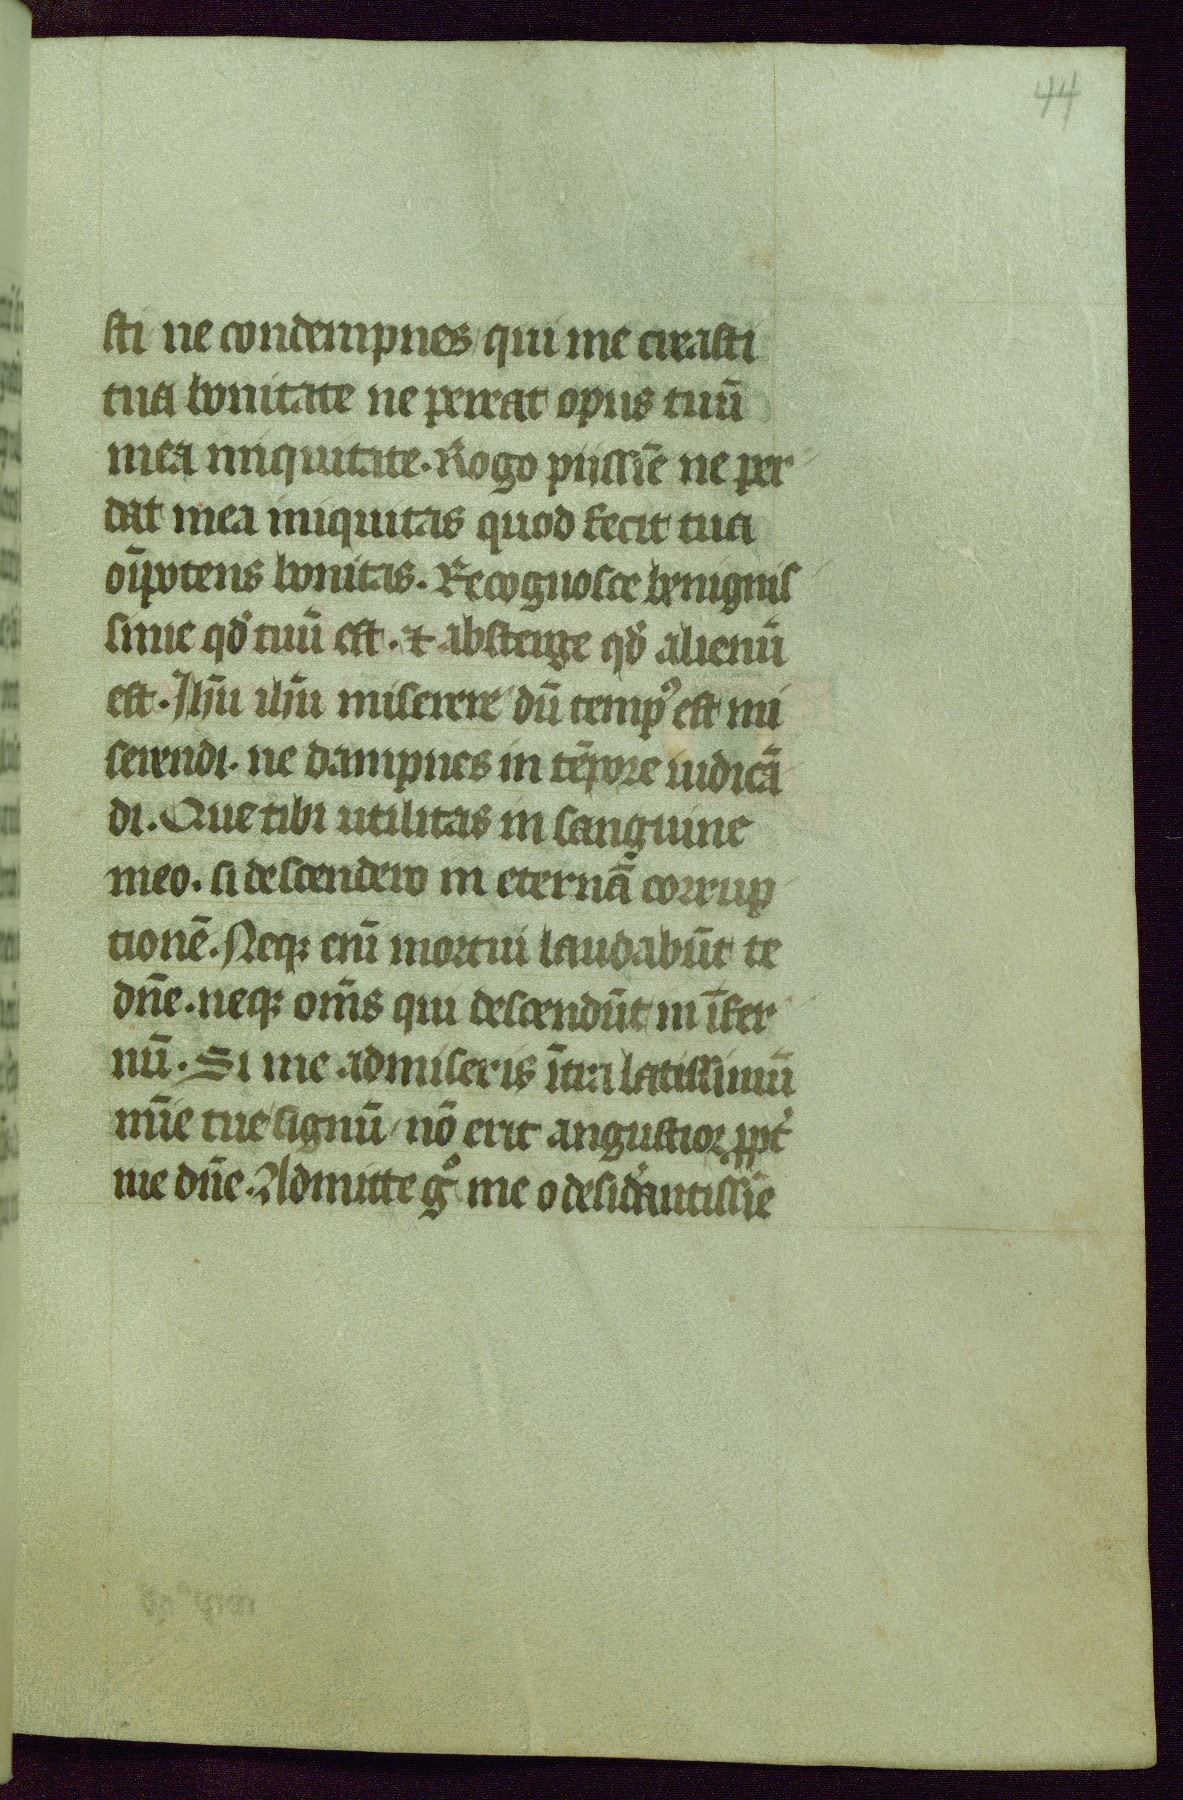 44
sti ne condempnes qui me creasti
tua bonitate ne pereat opus tuū
mea iniquitate. Rogo piissīe ne per
dat mea iniquitas quod fecit tua
oīpotens bonitas. Recognosce benignis
sime qd̓ tuū est. ⁊ absterge qd̓ alienū
est. Ihū ihū miserere dū tempꝰ est mi
serendi. ne dampnes in tēpore iudicā
di. Que tibi utilitas in sanguine
meo. si descendero in eternā corrup
tionē. Neqꝫ enī mortui laudabūt te
dn̄e. neqꝫ om̄s qui descendūt in īfer
nū. Si me admiseris ītra latissimū
mīe tue signū nō erit angustior ppt̓
me dn̄e. Admitte gͦ me o desid̓antissīe